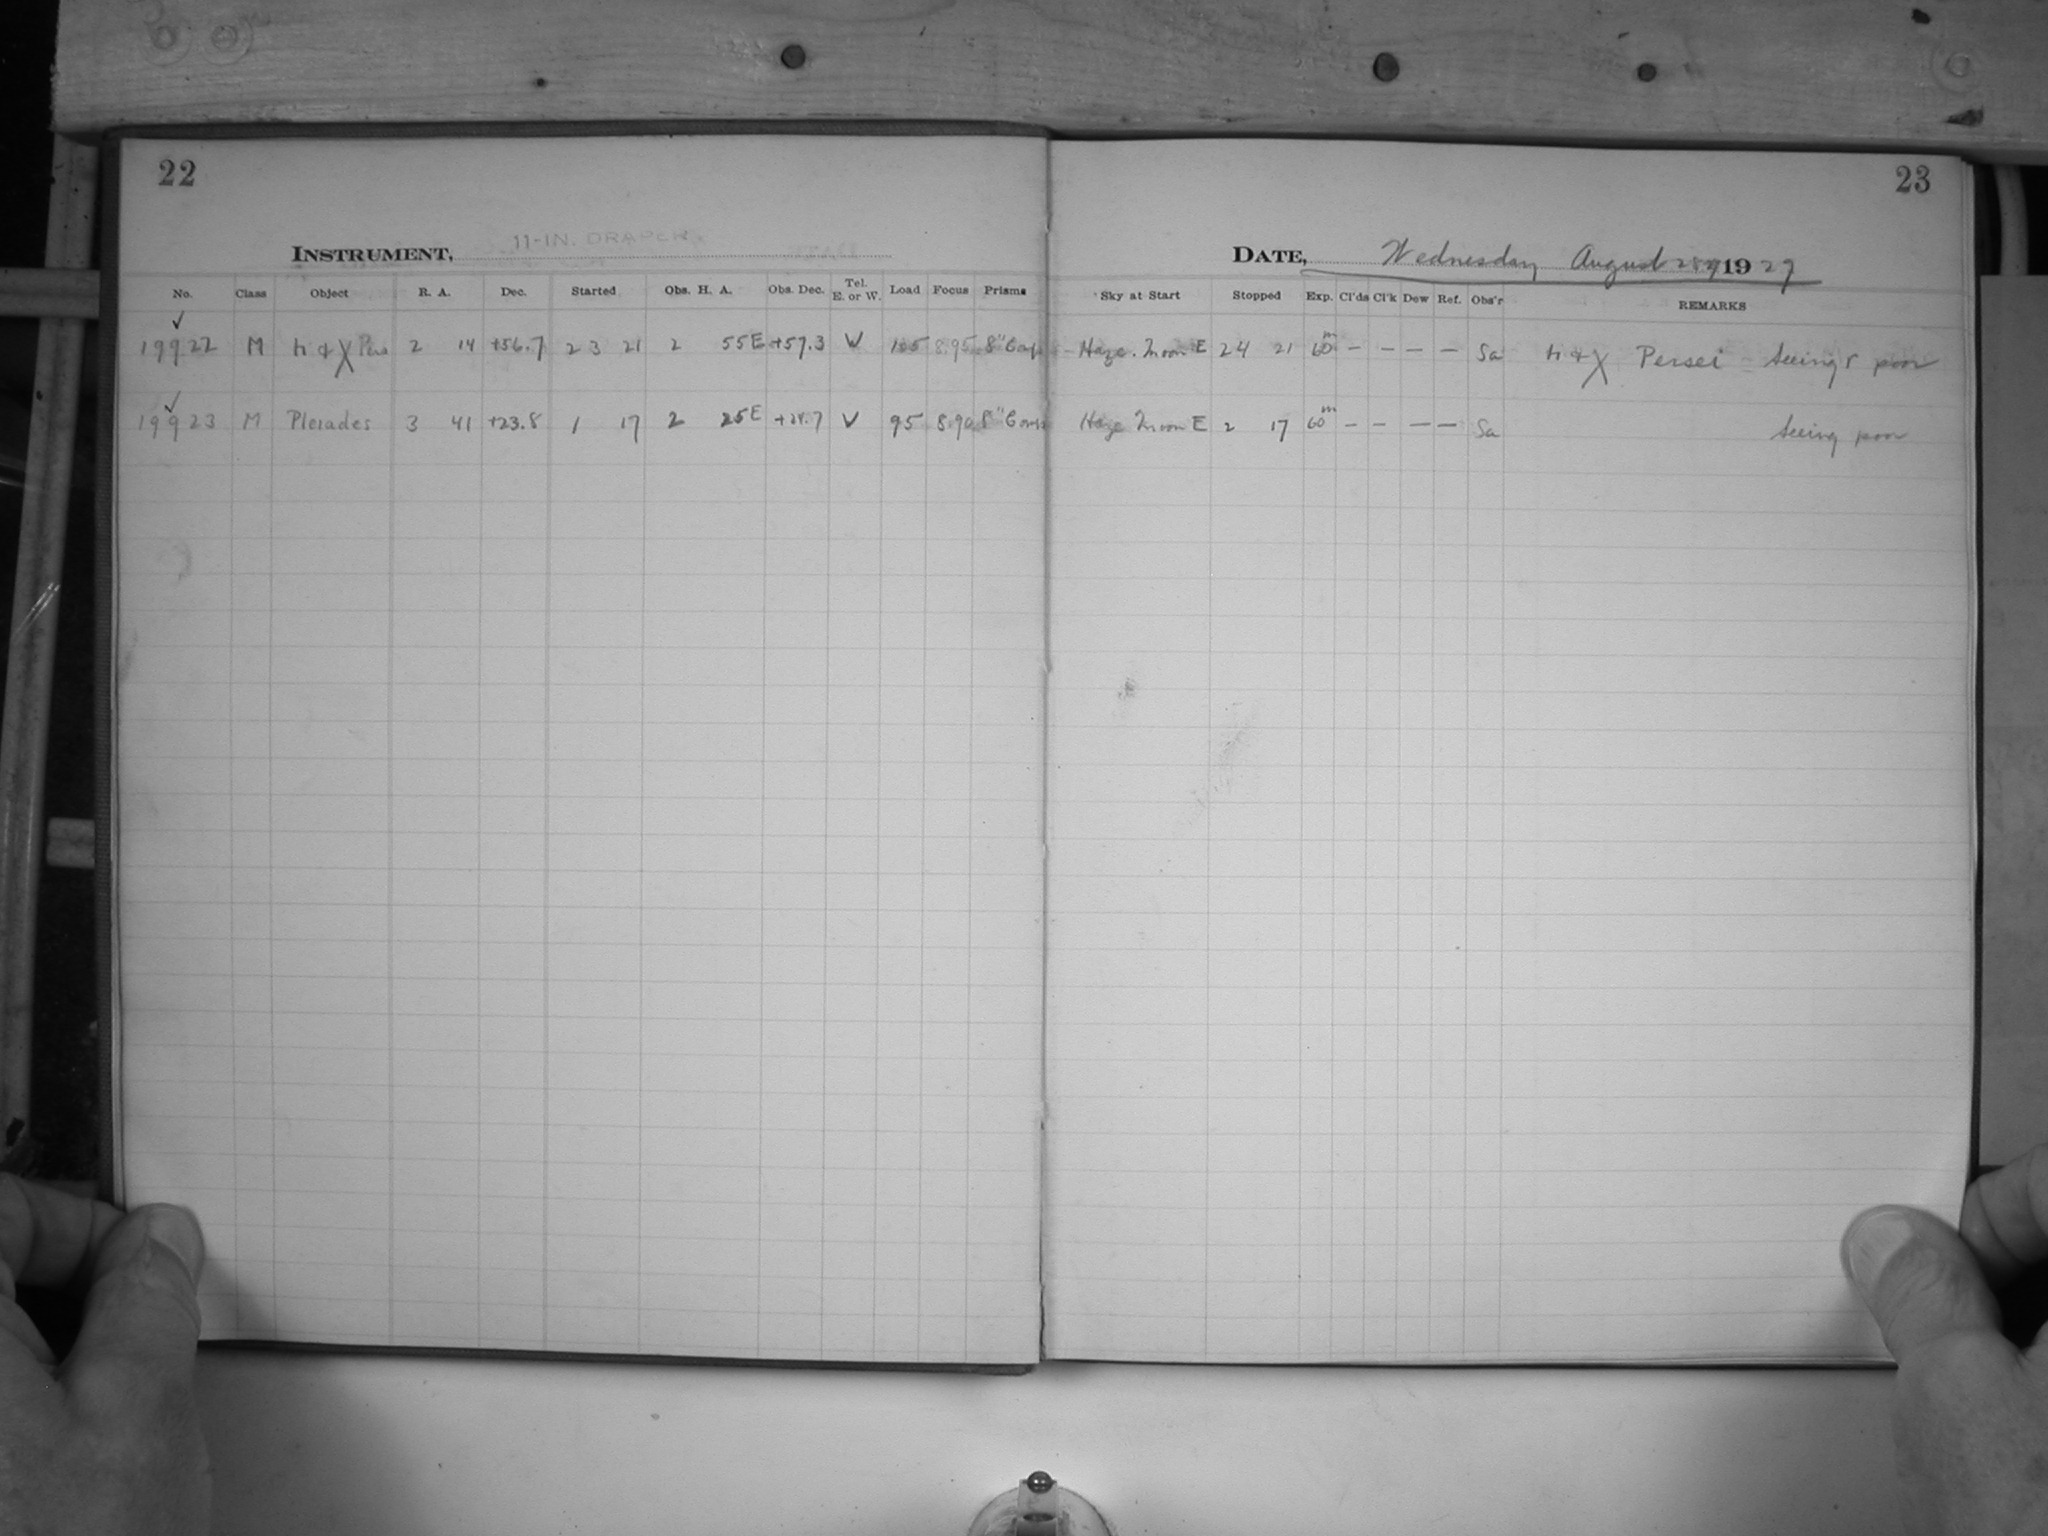 22
23
INSTRUMENT, 11-IN. DRAPER
DATE, Wednesday August 1929
No. Class Object R. A. Dec. Started Obs. H. A. Obs. Dec. Tel. E. or W. Load Focus Prisms Sky at Start Stopped Exp. Cl'ds Cl'k Dew Ref. Obs'r REMARKS
✓
19922 M h & χ Pers 2 14 +56.7 23 21 2 55E +57.3 W 105 8.95 8" Comp Haze. Moon E 24 21 60m — — — — Sa h & χ Persei - Seeing poor
✓
19923 M Pleiades 3 41 +23.8 1 17 2 25E +24.7 W 95 8.90 8" Comp Haze Moon E 2 17 60m — — — — Sa Seeing poor